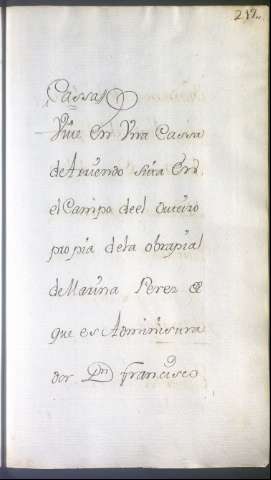 212
Cassa
Vive En Vna Cassa
de Arriendo sita En
el Campo de el outeiro
propia dela obrapia
de Marina Perez de
que es Administra
dor Dn francisco